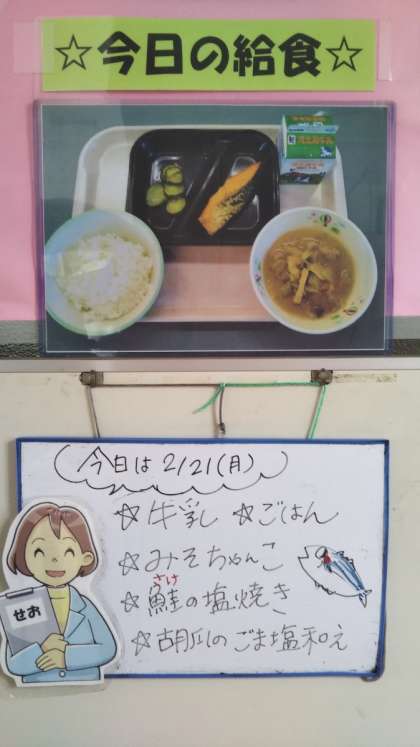 ☆今日の給食☆
今日は 2/21(月)
☆牛乳 ☆ごはん
☆みそちゃんこ
さけ
☆鮭の塩焼き
☆胡瓜のごま塩和え
せお